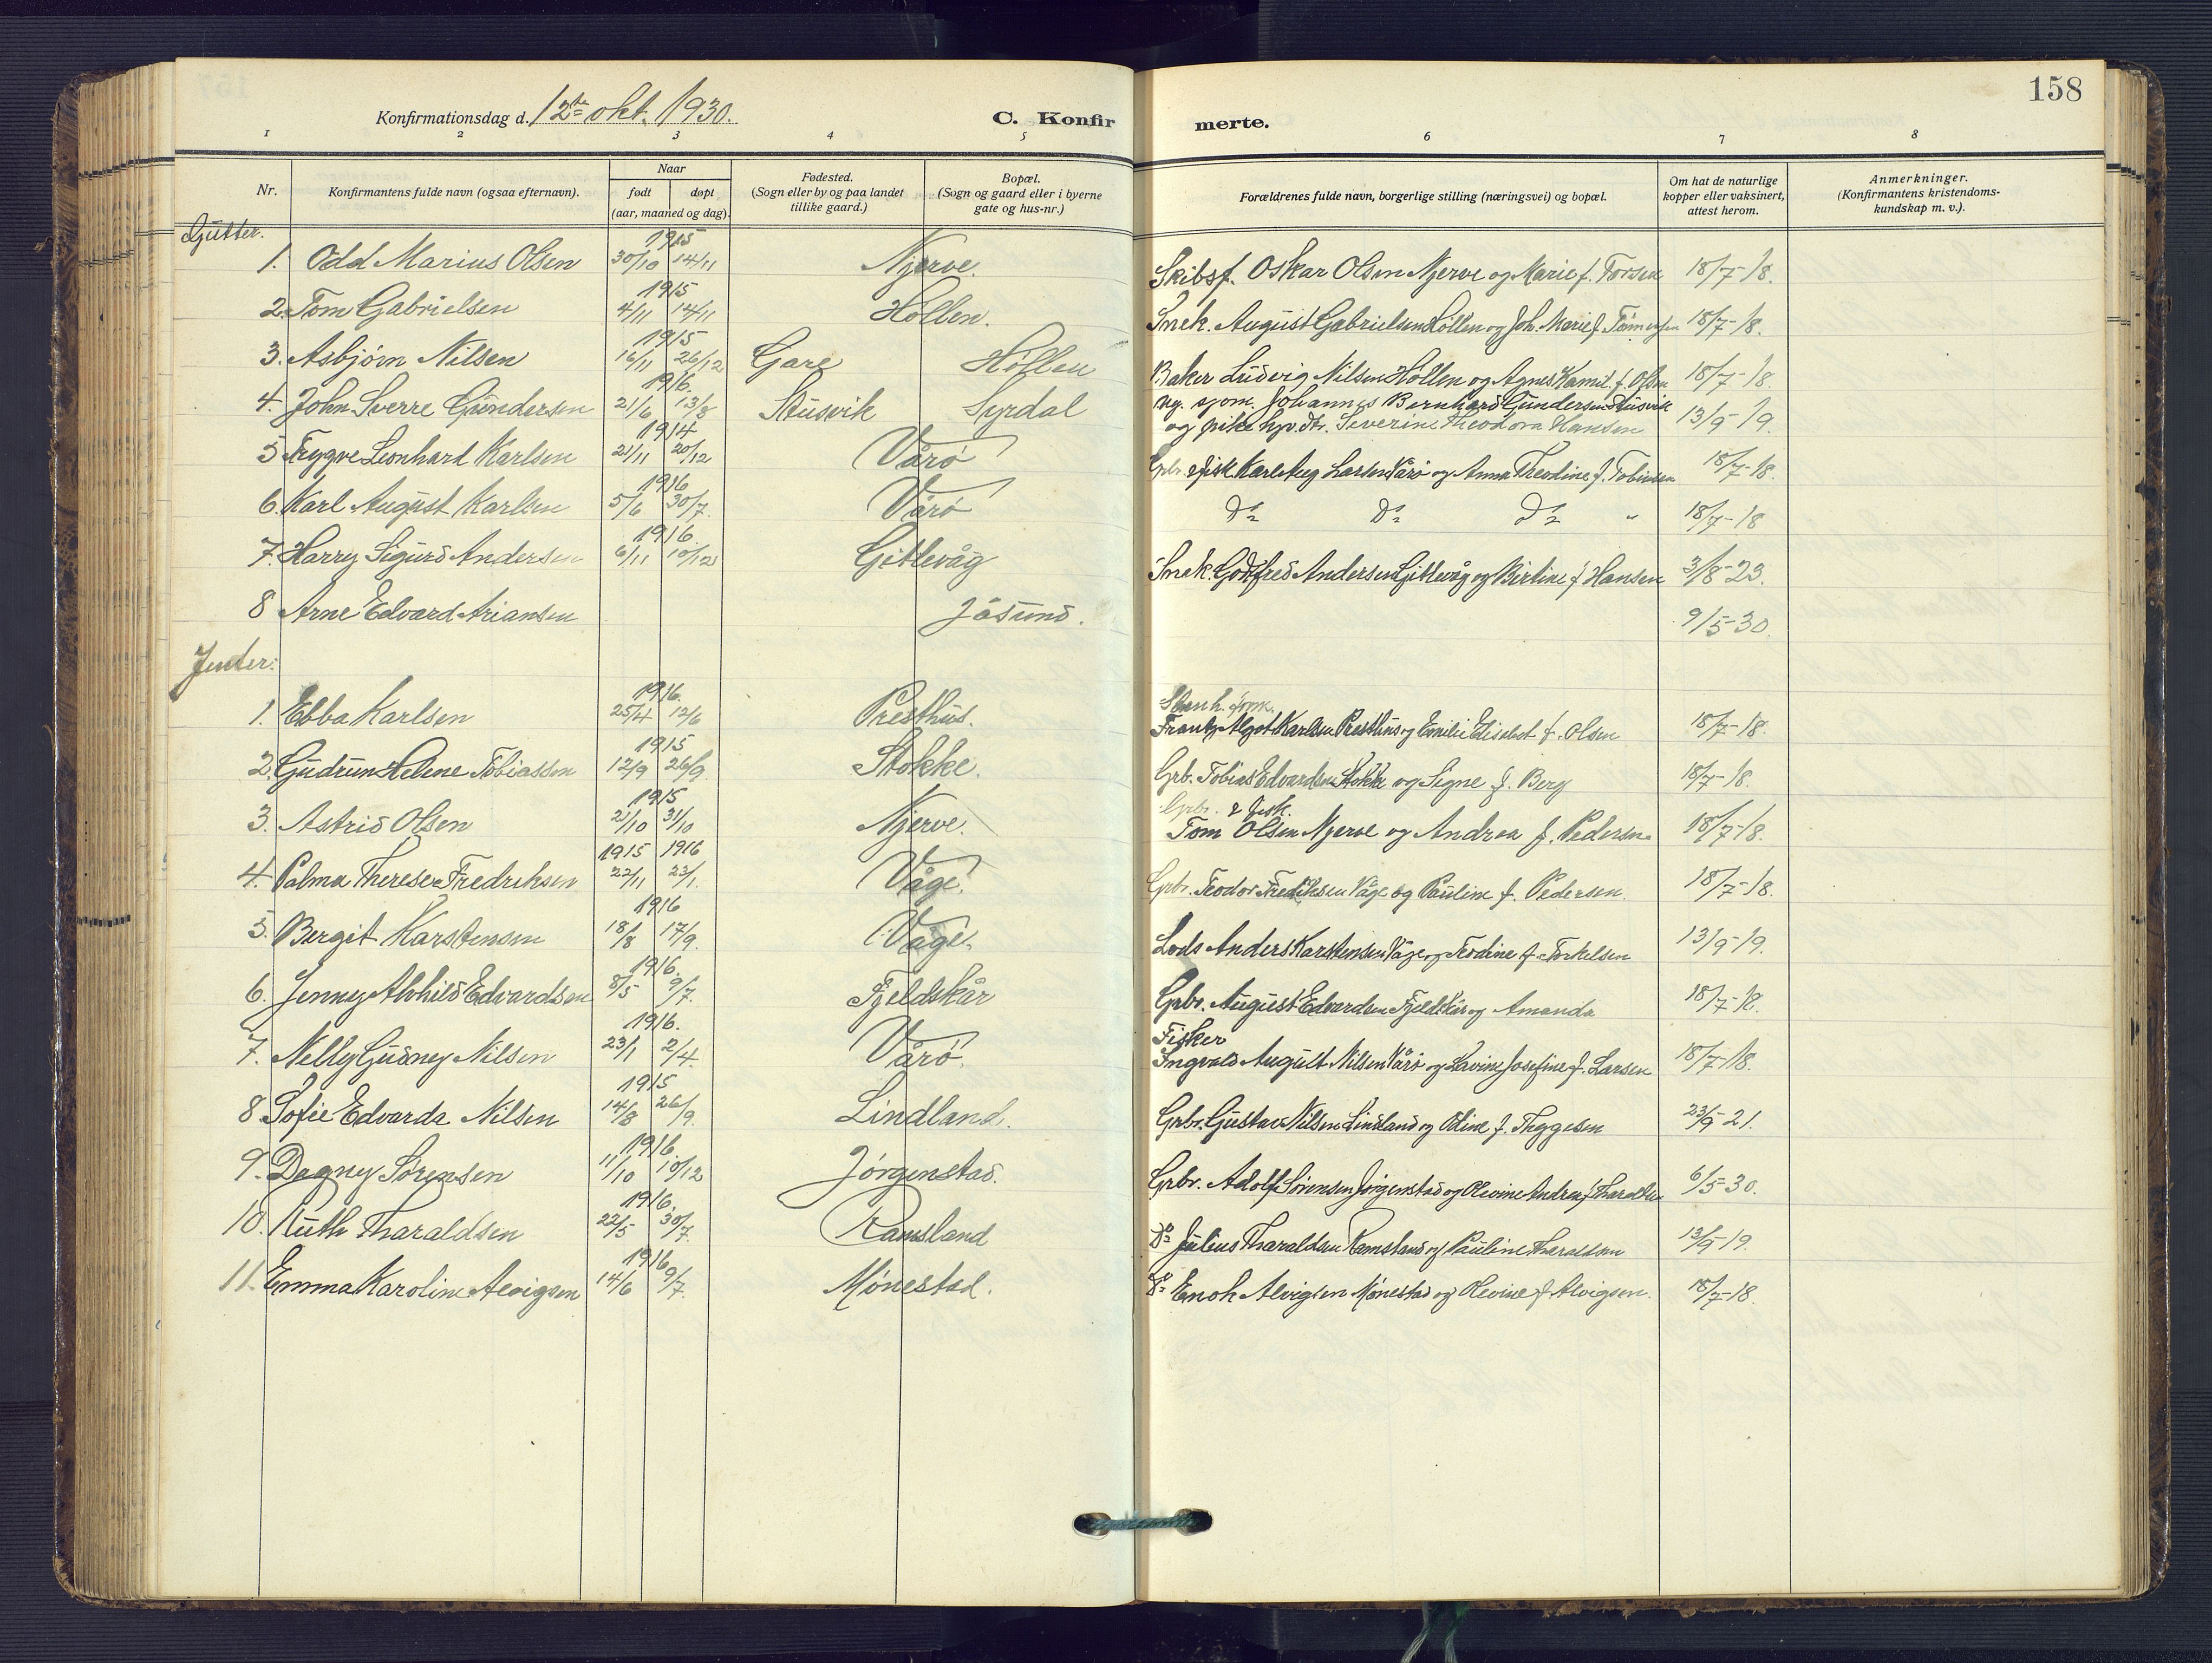 158
Konfirmationsdag d. 12te okt. 1930.
C. Konfirmerte.
1 2 3 4 5 6 7 8
Nr.
Konfirmantens fulde navn (ogsaa efternavn).
Naar
født døpt
(aar, maaned og dag).
Fødested.
(Sogn eller by og paa landet
tillike gaard.)
Bopæl.
(Sogn og gaard eller i byerne
gate og hus-nr.)
Forældrenes fulde navn, borgerlige stilling (næringsvei) og bopæl.
Om hat de naturlige
kopper eller vaksinert,
attest herom.
Anmerkninger.
(Konfirmantens kristendoms-
kundskap m. v.).
Gutter.
1. Odd Marius Olsen 1915 30/10 14/11 Njerve. Skibsf. Oskar Olsen Njerve og Marie f. Torsen 18/7-18.
2. Tom Gabrielsen 1915 4/11 14/11 Höllen. Snek. August Gabrielsen Höllen og Joh. Marie f. 18/7-18.
3. Asbjörn Nilsen 1915 16/11 26/12 Gare Höllen Baker Ludvig Nilsen Höllen og Agnes Kamil. f. Olsen 18/7-18.
4. John Sverre Gundersen 1916. 21/6 13/8 Stusvik Syrdal ug. sjom. Johannes Bernhard Gundersen Stusvik
og pike hjv. dtr. Severine Theodora Hansen 13/9-19.
5 Trygve Leonhard Karlsen 1914 21/11 20/12 Vårö Grbr. & fisk. Karl Aug Larsen Vårö og Anna Theodine f. Tobiasen 18/7-18.
6. Karl August Karlsen 1916 5/6 30/7. Vårö Do Do Do " 18/7-18
7. Harry Sigurd Andersen 1916. 6/11 10/12 Gitlevåg Snek. Godtfred Andersen Gitlevåg og Birtine f Hansen 3/8-23.
8 Arne Edvard Ariansen Jåsund. 9/5-30.
Jenter:
1. Ebba Karlsen 1916. 25/4 12/6 Presthus. Stenh. form.
Frantz Algot Karlsen Presthus og Emilie Elisabet f. Olsen 18/7-18.
2. Gudrun Helene Tobiassen 1915 12/9 26/9 Stokke. Grb. Tobias Edvardsen Stokke og Signe f. Berg 18/7-18.
3. Astrid Olsen 1915 21/10 31/10 Njerve. Grbr. & fisk.
Tom Olsen Njerve og Andrea f. Pedersen 18/7-18.
4. Palma Therese Fredriksen 1915 1916 22/11 23/1. Våge. Grbr. Teodor Fredriksen Våge og Pauline f. Pedersen. 18/7-18.
5. Bergit Karstensen 1916 18/8 17/9. Våge. Lods Anders Karstensen Våge og Teodine f. Torkelsen 13/9-19.
6. Jenny Alvhild Edvardsen 1916. 8/5 9/7. Fjeldskår Grbr. August Edvardsen Fjeldskår og Amanda 18/7-18.
7. Nelly Gudney Nilsen 1916. 23/1 2/4. Vårö. Fisker
Ingvald August Nilsen Vårö og Lavine Josefine f. Larsen 18/7-18.
8 Sofie Edvarda Nilsen 1915 14/8 26/9. Lindland. Grbr. Gustav Nilsen Lindland og Oline f. Thygesen 23/9-21.
9. Dagny Sörensen 1916. 11/10 10/12 Jörgenstad. Grbr. Adolf Sörensen Jörgenstad og Olevine Andrea f Tharaldsen 6/5-30.
10. Ruth Tharaldsen 1916. 22/5 30/7. Ramsland Do Julius Tharaldsen Ramsland og Pauline Tharaldsen 13/9-19.
11. Emma Karoline Alvigsen 1916 14/6 9/7. Mönestad. Do Enok Alvigsen Mönestad og Olevine f Alvigsen. 18/7-18.